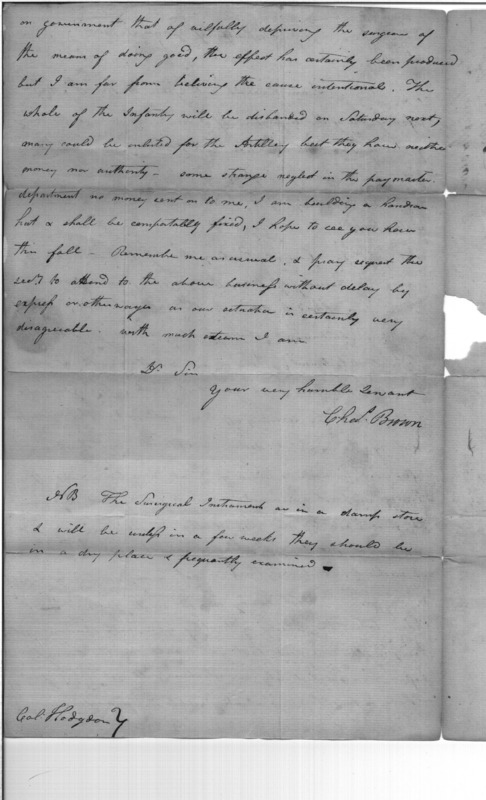 on government that of wilfully depriving the surgeon of
the means of doing good, this effect has certainly been produced
but I am far from believing the cause intentional. The
whole of the Infantry will be disbanded on Saturday next,
many could be enlisted for the Artillery but they have neither
money nor authority - some strange neglect in the paymaster
department no money sent on to me, I am building a handsom
hut & shall be comfortably fixed, I hope to see you here
this fall - Remember me as usual, & pray request the
to attend to the above business without delay by
express or otherways as our situation is certainly very
disagreeable. with much esteem I am
Dr Sir
your very humble Servant
Chas. Brown
NB The Surgical Instruments are in a damp store
& will be useless in a few weeks they should be
in a dry place & frequently examined
Col. Hodgdon